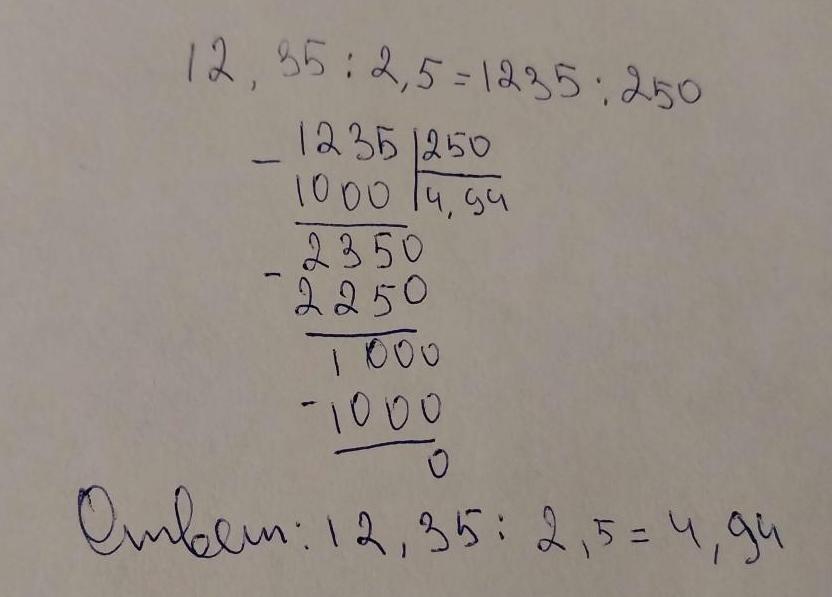 12,35 : 2,5 = 1235 : 250
- 1235 | 250
1000 | 4,94
2350
- 2250
1000
- 1000
0
Ответ: 12,35 : 2,5 = 4,94